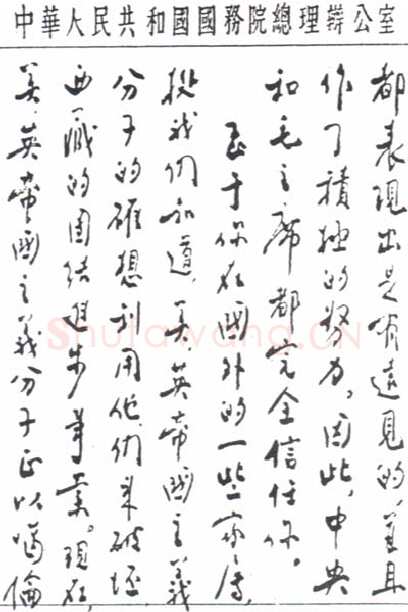 中華人民共和國國務院總理辦公室
都表現出是有遠見的,並且
作了積極的努力。因此,中央
和毛主席都完全信任你。
至于你在國外的一些家属,
据我们知道,美、英帝國主義
分子的確想利用他们来破坏
西藏的团结進步事業。现在,
美、英帝國主義分子正以噶倫
Shufawang.CN